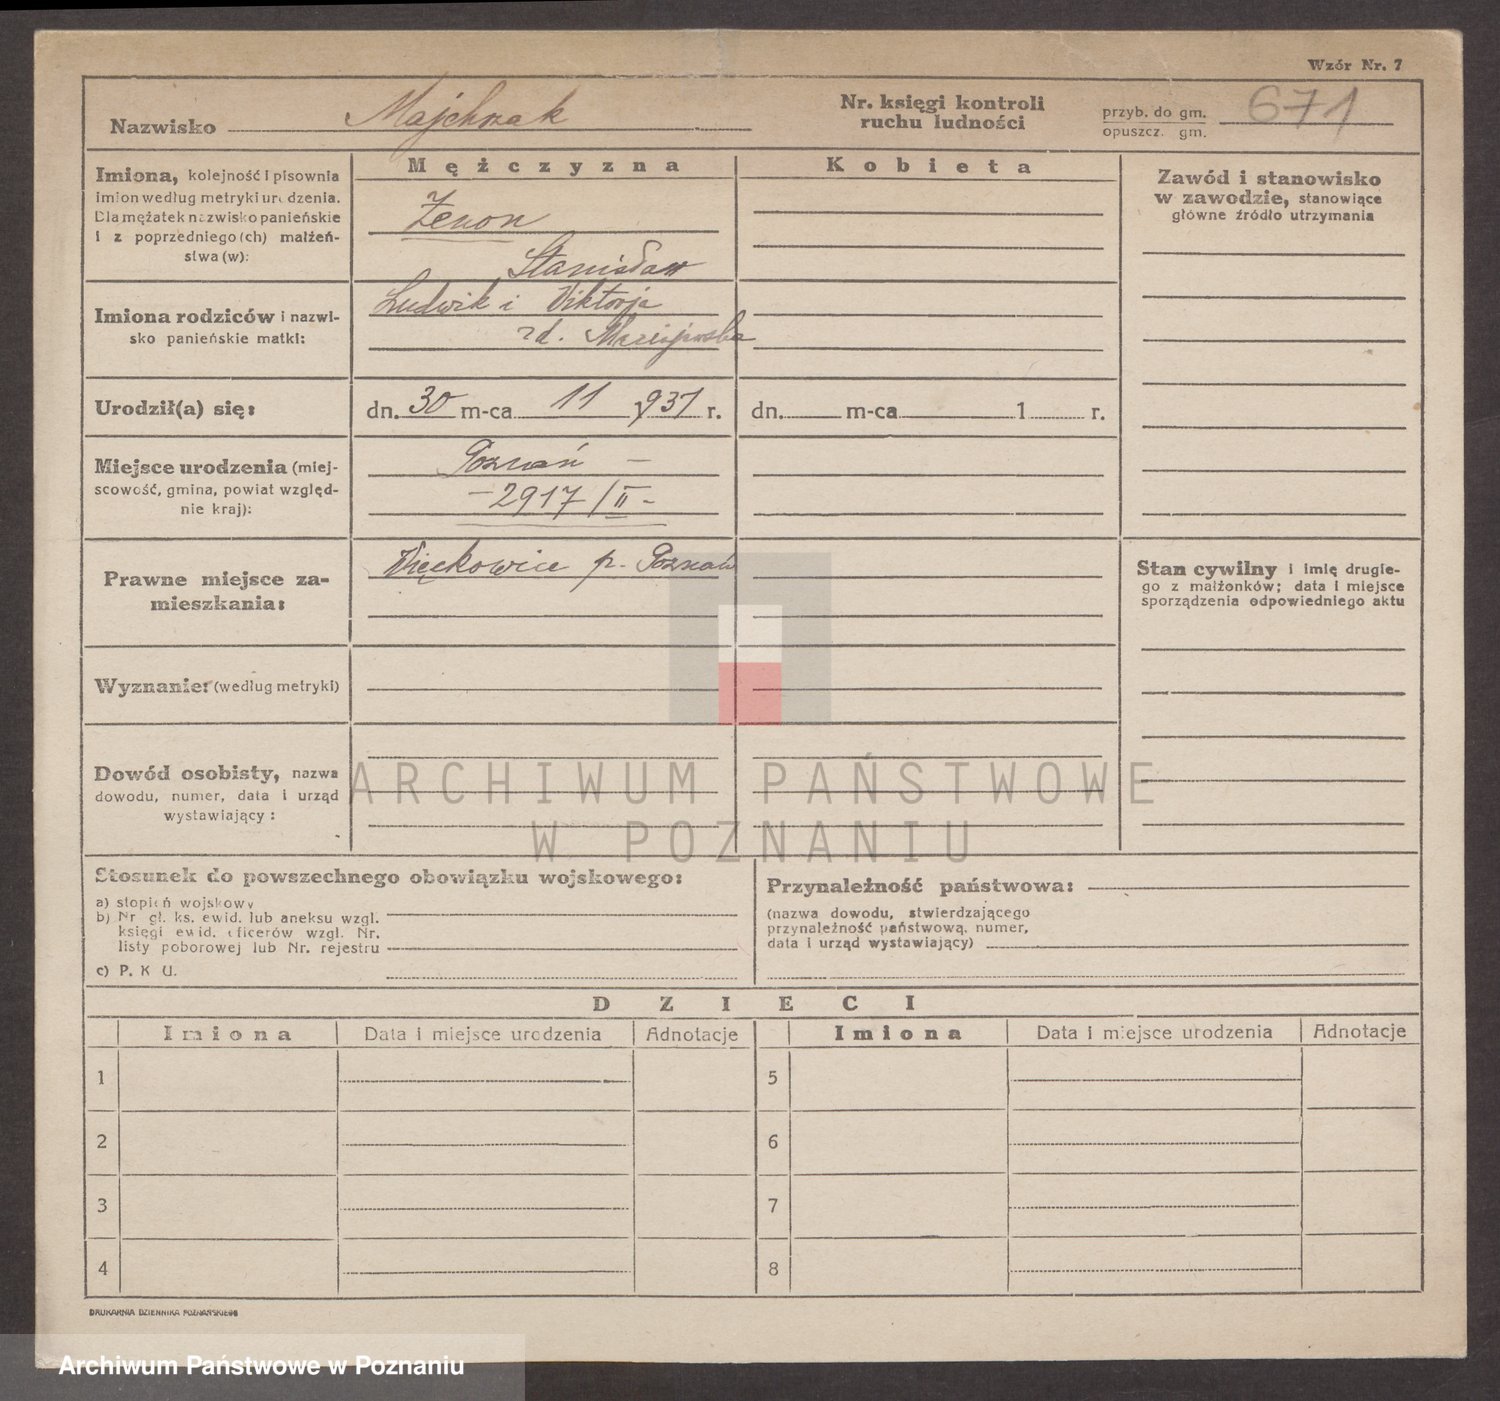 Wzór Nr. 7
Nazwisko Majchrzak
Nr. księgi kontroli
ruchu ludności
przyb. do gm.
opuszcz. gm.
671
Mężczyzna
Kobieta
Imiona, kolejność i pisownia
imion według metryki urodzenia.
Dla mężatek nazwisko panieńskie
i z poprzedniego(ch) małżeń-
stwa(w):
Zenon
Stanisław
Zawód i stanowisko
w zawodzie, stanowiące
główne źródło utrzymania
Imiona rodziców i nazwi-
sko panieńskie matki:
Ludwik i Viktorja
zd.
Urodził(a) się:
dn. 30 m-ca 11 1931 r.
dn. m-ca 1 r.
Miejsce urodzenia (miej-
scowość, gmina, powiat względ-
nie kraj):
Poznań –
– 2917/II –
Prawne miejsce za-
mieszkania:
Więckowice p. Poznań
Stan cywilny i imię drugie-
go z małżonków; data i miejsce
sporządzenia odpowiedniego aktu
Wyznanie: (według metryki)
Dowód osobisty, nazwa
dowodu, numer, data i urząd
wystawiający:
ARCHIWUM PAŃSTWOWE
W POZNANIU
Stosunek do powszechnego obowiązku wojskowego:
a) stopień wojskowy
b) Nr gł. ks. ewid. lub aneksu wzgl.
księgi ewid. oficerów wzgl. Nr.
listy poborowej lub Nr. rejestru
c) P. K U.
Przynależność państwowa:
(nazwa dowodu, stwierdzającego
przynależność państwową, numer,
data i urząd wystawiający)
DZIECI
Imiona Data i miejsce urodzenia Adnotacje Imiona Data i miejsce urodzenia Adnotacje
1 5
2 6
3 7
4 8
DRUKARNIA DZIENNIKA POZNAŃSKIEGO
Archiwum Państwowe w Poznaniu